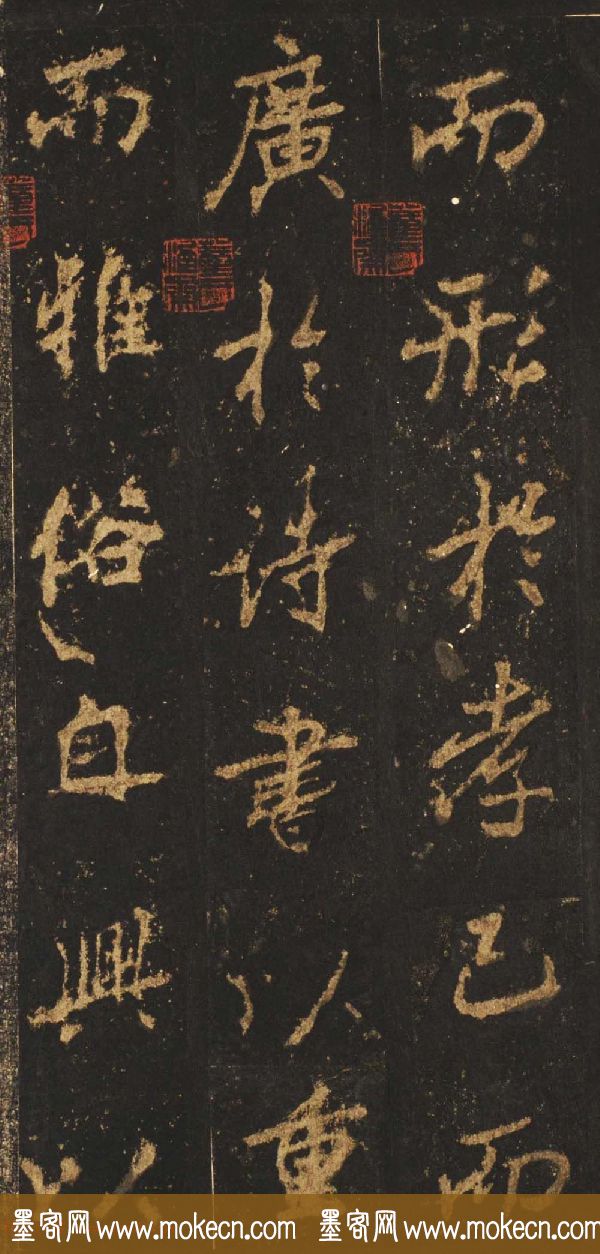 而形於孝已而
廣於詩書以重
而雅俗自興以
墨客网 www.mokecn.com 墨客网 www.mokecn.com